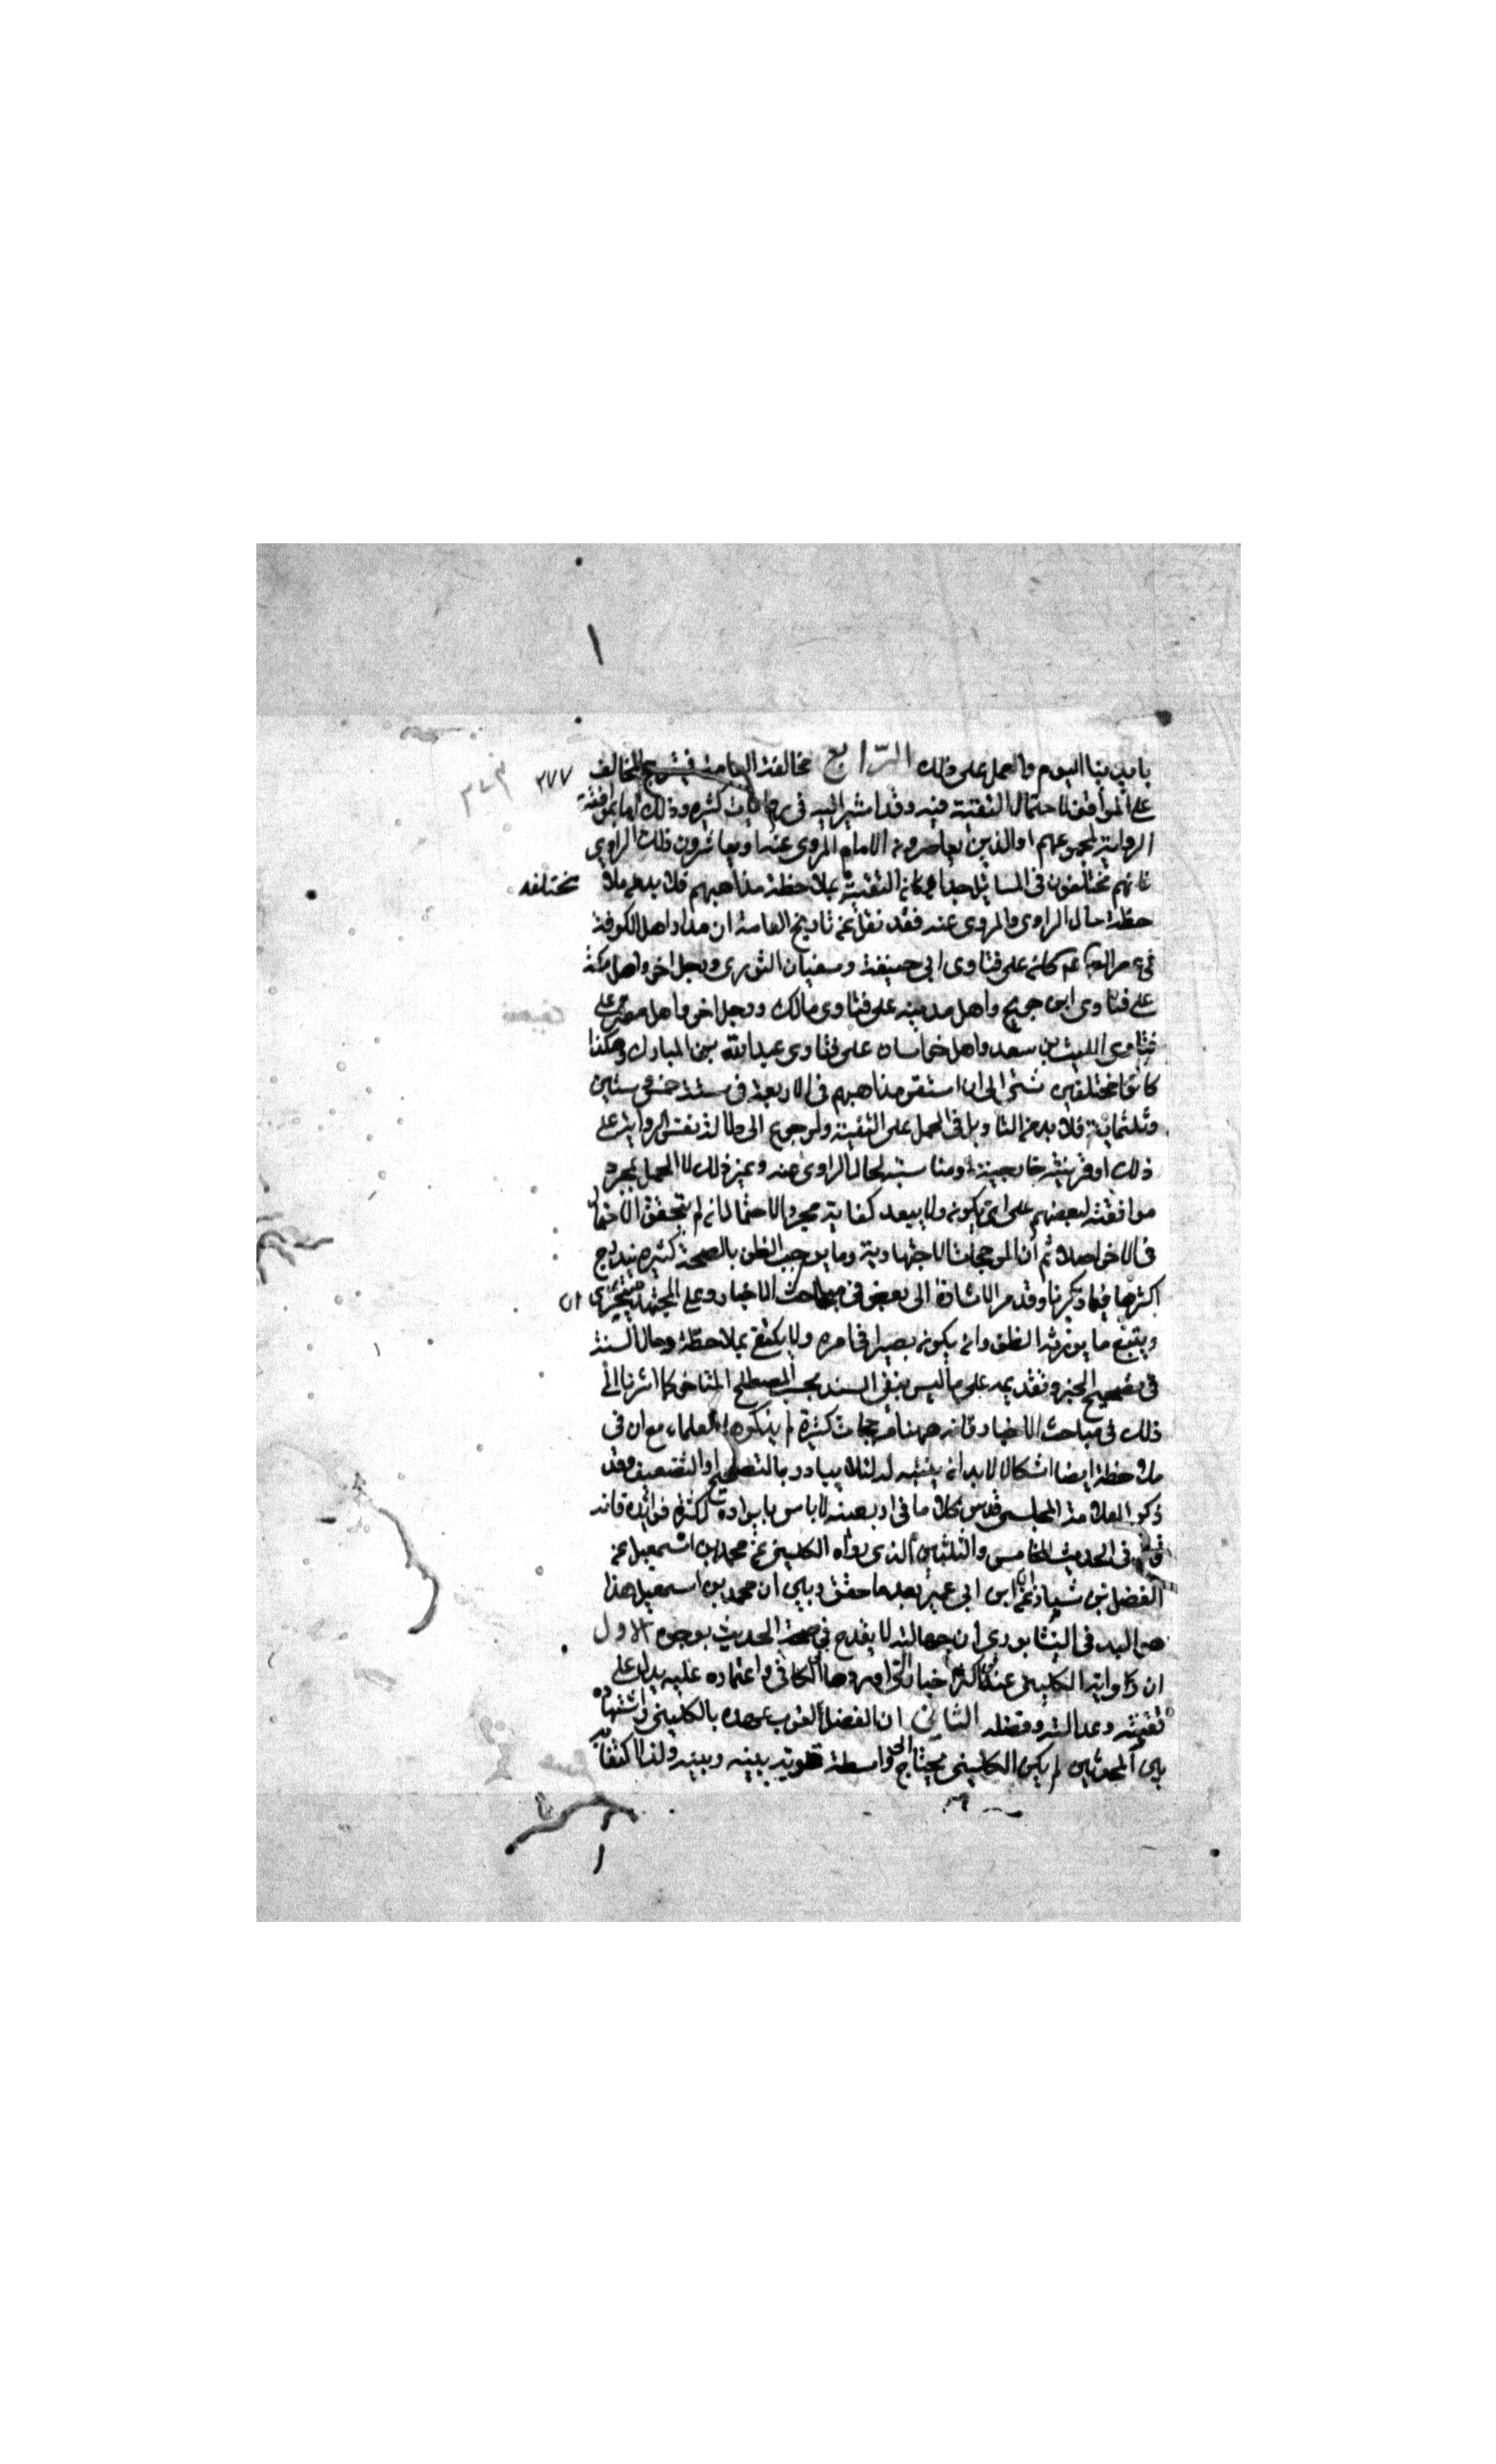 بايدينا اليوم والعمل على ذلك الرابع مخالفة العامة فيترجح المخالف
على الموافق لاحتمال التقية فيه وقد اشير اليه في روايات كثيرة وذلك اما بموافقة
الرواية لجميعهم او الذين يعاصرون الامام المروي عنه او يعاشرون ذلك الراوي
فانهم مختلفون في المسائل جدا وكانه التقية بملاحظة مذاهبهم فلا بد من ملا
حظة حال الراوي والمروي عنه فقد نقل عن تاريخ العامة ان مدار اهل الكوفة
في عصر الصادق ع كانه على فتاوى ابي حنيفة وسفيان الثوري ورجل اخر واهل مكة
على فتاوى ابن جريج واهل مدينه على فتاوى مالك ورجل اخر واهل مصر على
فتاوى الليث بن سعد واهل خراسان على فتاوى عبد الله بن المبارك وهكذا
كانوا مختلفين شتى الى ان استقر مذاهبهم في الاربعة في سنة خمس وستين
وثلثماية فلا بد من التاويل في الحمل على التقية والرجوع الى دلالة نفس الرواية على
ذلك او قرينة خارجية ومناسبة لحال الراوي عنه وغير ذلك لا الحمل بمجرد
موافقته لبعضهم على اي يكون ولا يبعد كفاية مجرد الاحتمال ان لم يتحقق الاحتمال
في الاخر اصلا ثم ان المرجحات الاجتهادية وما يوجب الظن بالصحة كثيرة يندرج
اكثرها فيما ذكرنا وقد مر الاشارة الى بعض في مباحث الاخبار وعلى المجتهد ان يتحرى
ويتبع ما يورث الظن وان يكون بصيرا في امره ولا يكتفي بملاحظة رجال السند
في تصحيح الخبر وتقديمه على ما ليس بنقي السند بحسب المصطلح المتاخر كما اشرنا الى
ذلك في مباحث الاخبار فانه ههنا مرجحات كثيرة لم يذكره العلماء مع ان في
ملاحظة ايضا اشكالا لا بد ان يتنبه له لئلا يبادر بالتصحيح او التضعيف وقد
ذكر العلامة المجلسي قدس كلاما في اربعينه لا باس بايراده لكثرة فوائده فانه
في الحديث الخامس والثلثين الذي رواه الكليني عن محمد بن اسمعيل عن
الفضل بن شاذان عن ابن ابي عمير بعد ما حقق وبين ان محمد بن اسمعيل هذا
هو البندقي النيشابوري ان جهالته لا يقدح في صحة الحديث بوجوه الاول
ان رواية الكليني عنه اكثر اخباره التي اوردها الكافي واعتماده عليه يدل على
ثقته وعدالته وفضله الثاني ان الفضل لقرب عهده بالكليني واشتهاره
بين المحدثين لم يكن الكليني يحتاج الى واسطة قوية بينه وبينه ولذا اكتفى به
٢٧٧
مختلفه